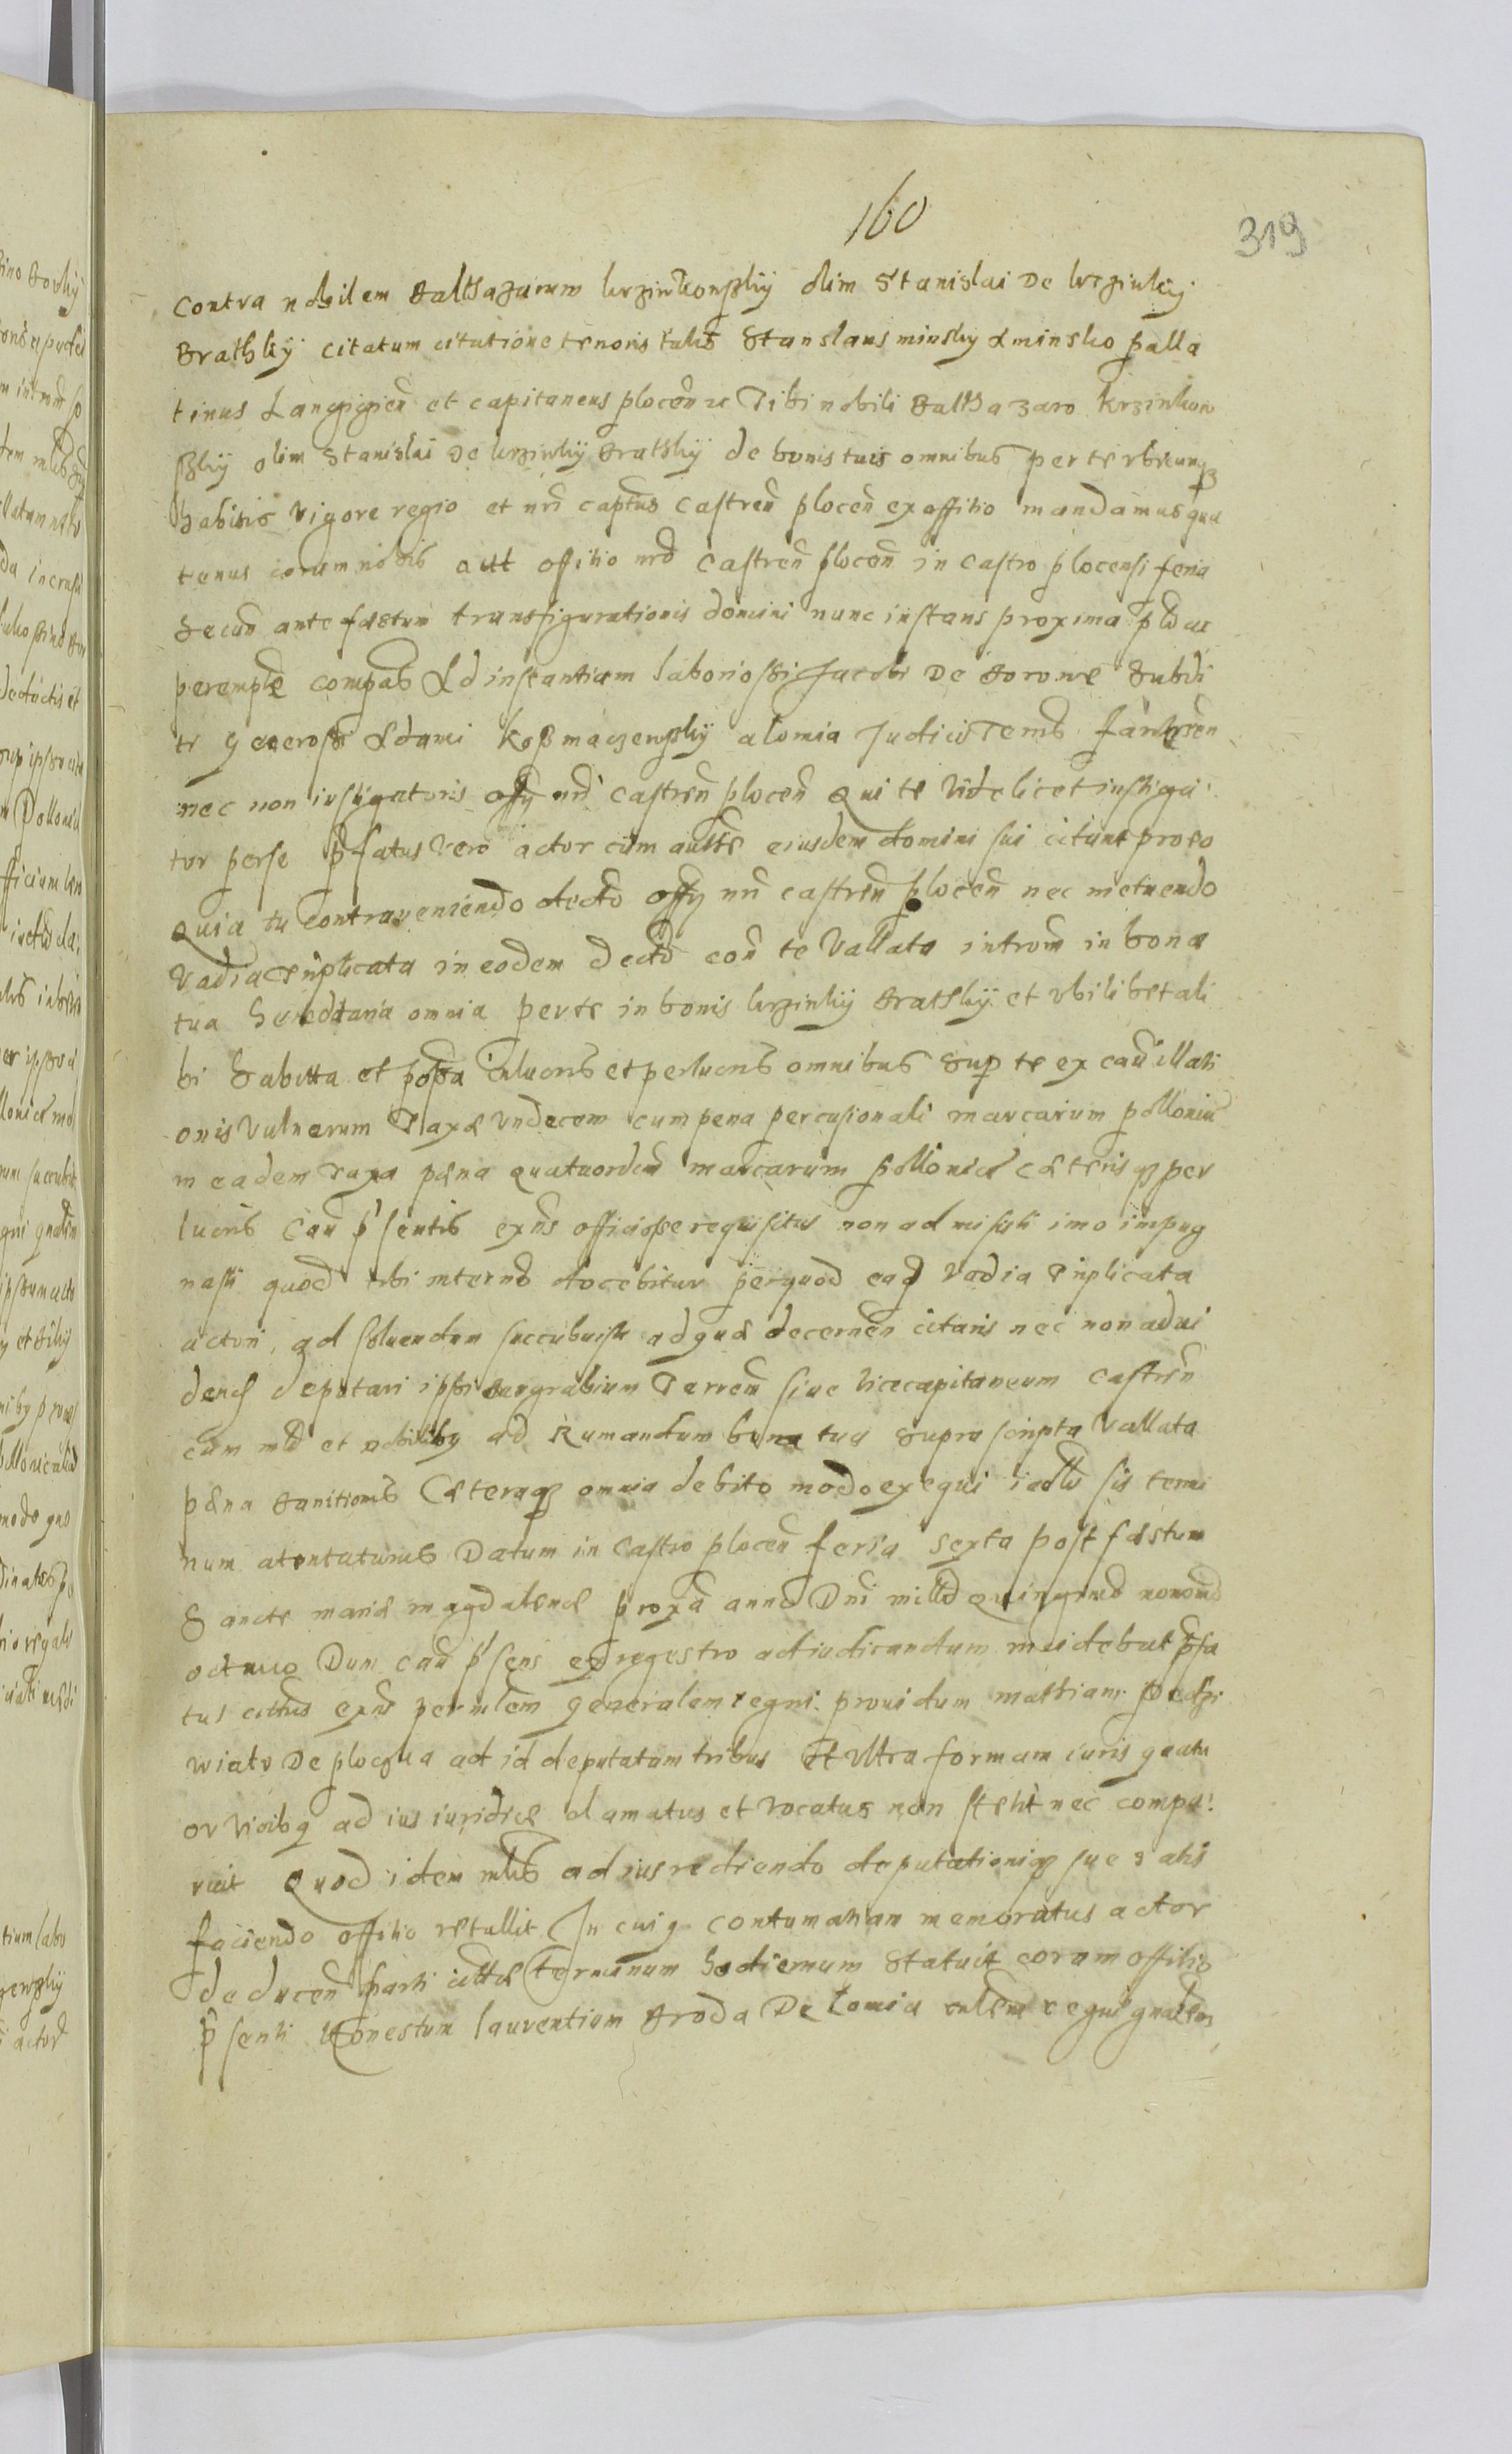 160
319
contra nobilem Balthazarum krzinkowskÿ olim Stanislai De krzinkÿ
Brathkÿ citatum citatione tenoris talis Stanslaus minsky Aminsko palla
tinus Lanczicien et capitaneus plocen et Tibi nobili Balthazaro krzinkow
skÿ olim Stanislai De krzinkÿ Bratskÿ de bonis tuis omnibus per te vbicunqz
habitis vigore regio et nri captus Castren plocen ex offitio mandamus qua
tenus coram nobis aut offitio nro Castren plocen in Castro plocensi feria
Secun ante festum transfigurationis domini nunc instans proxima
perempte compas Ad instantiam laboriossi Jacobi De Borowe Subdi
ti generossi Adami kossmaczewskÿ alomia Judicis Terris
nec non instigatoris offy nri castren plocen Qui te videlicet instiga
tor per se pfatus vero actor cum authte eiusdem domini sui citant pro eo
Quia tu contraveniendo decto offy nri castren plocen nec metuendo
vadia triplicata in eodem decto con te vallata introm in bona
tua hereditaria omnia per te in bonis krzinkÿ Bratskÿ et vbilibet ali
bi habitta et possa inlucris et perlucris omnibus Sup te ex cau illati
onis vulnerum Taxa vndecem cum pena percusionali marcarum pollonica
in eadem taxa pena quatuordem marcarum pollonica Caeterisqz per
lucris Cau psentis exns officiose requisitus non admisisti imo impug
nasti quod tibi interno docebitur per quod eaq vadia triplicata
actori ad soluendum succubuisti ad quae decernen citaris nec non adui
dend deputari ipsi burgrabium Terren siue vicecapitaneum Castren
cum mlo et nobiliby ad Rumandum bona tua Supra scripta vallata
pena banitionis Caeteraqz omnia debito modo exequi iadlu sis termi
num atentaturus Datum in Castro plocen feria Sexta post festum
Sancte mariae magdalenae proxa anno Dni millo quingmo nonomo
octauo Dum cau psens ex regestro adiudicandum incidebat pfa
tus cittus exns per mlem generalem regni prouidum mathiam
wiato De plocqua ad id deputatum tribus et vltra formam iuris quatu
or vicibq ad ius iuridice clamatus et vocatus non stetit nec compa
ruit Quod idem mlis ad ius rediendo deputationiqz sue satis
faciendo offitio retullit In cuiq contumatian memoratus actor
deducen parti cittae terminum hodiernum Statuit coram offitio
psenti Honestum laurentium Broda De lomia mlem regni gnalem